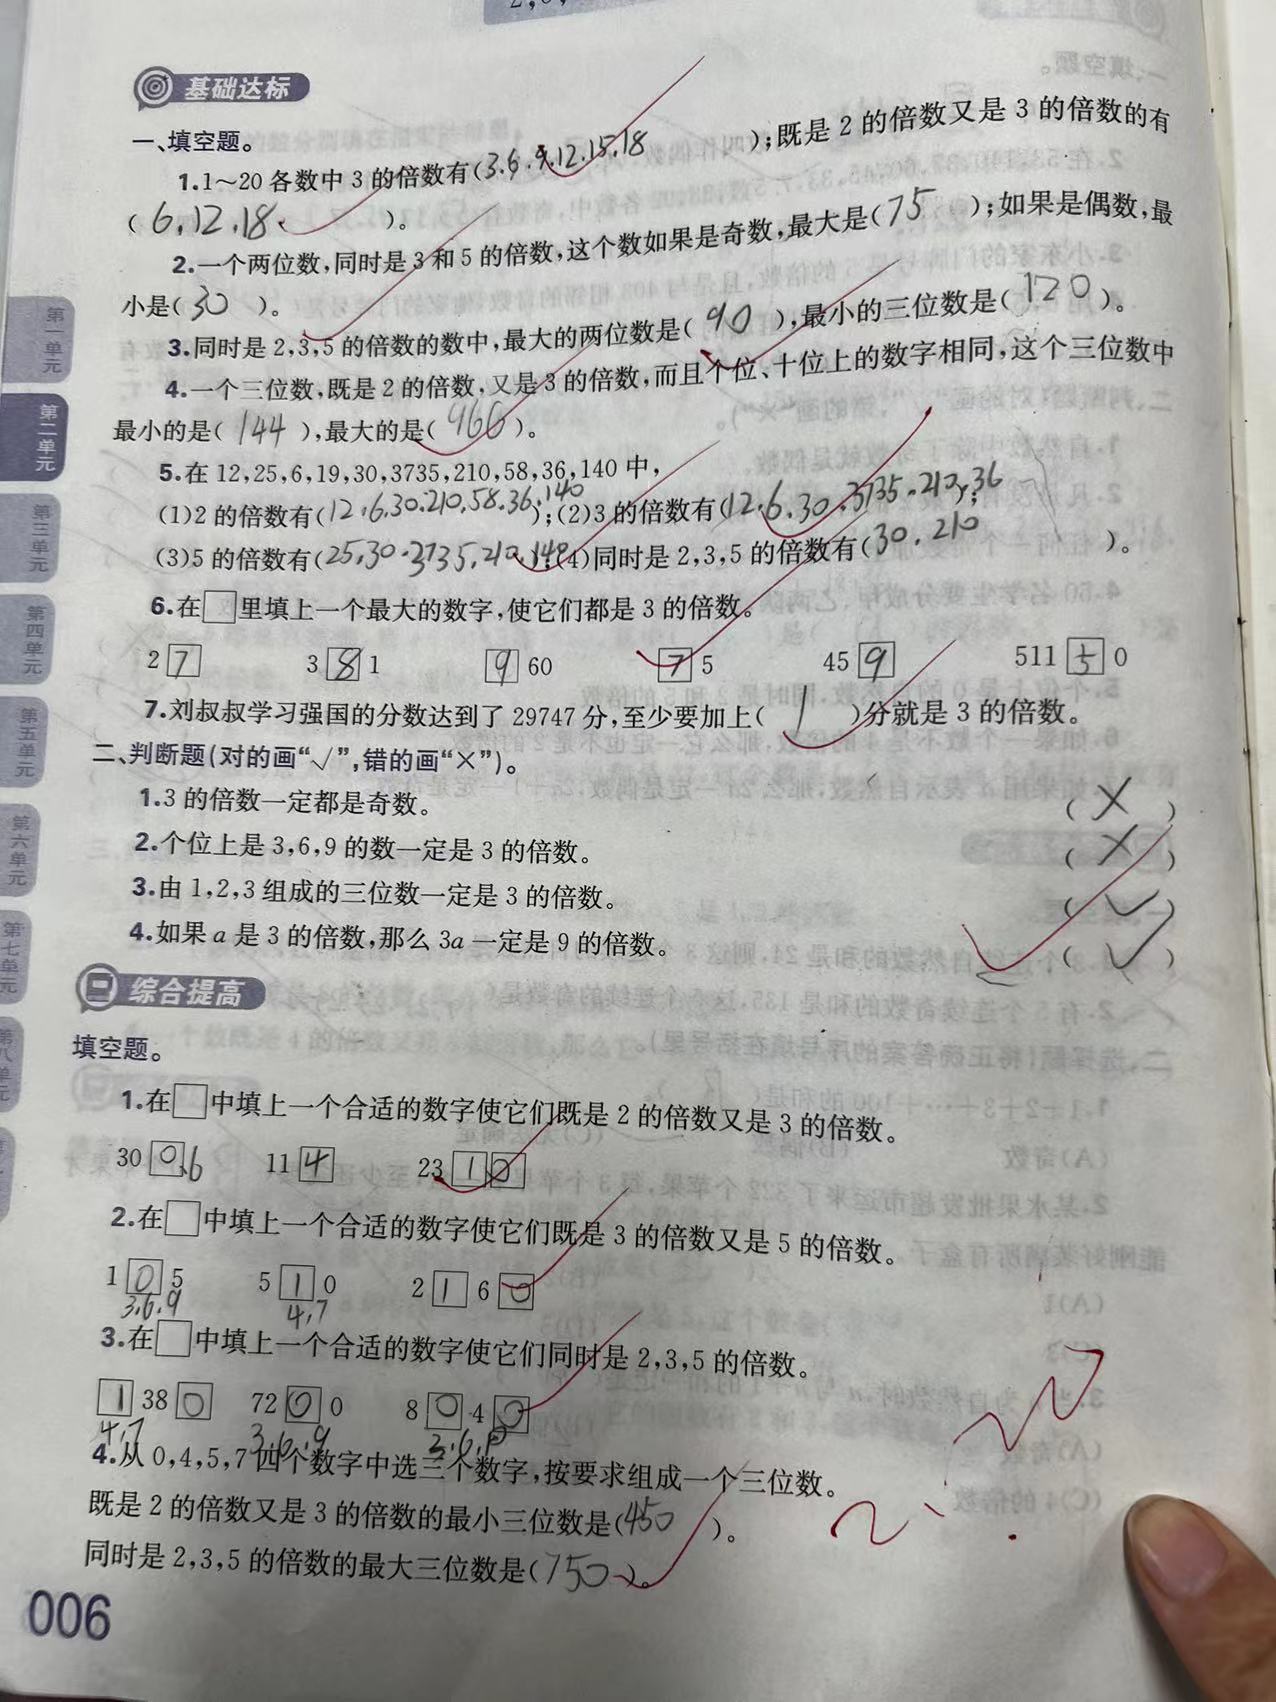 基础达标
一、填空题。
1.1～20各数中3的倍数有(3.6.9.12.15.18);既是2的倍数又是3的倍数的有
(6.12.18)。
2.一个两位数,同时是3和5的倍数,这个数如果是奇数,最大是(75);如果是偶数,最
小是(30)。
3.同时是2,3,5的倍数的数中,最大的两位数是(90),最小的三位数是(120)。
4.一个三位数,既是2的倍数,又是3的倍数,而且个位、十位上的数字相同,这个三位数中
最小的是(144),最大的是(966)。
5.在12,25,6,19,30,3735,210,58,36,140中,
(1)2的倍数有(12.6.30.210.58.36.140);(2)3的倍数有(12.6.30.3735.210.36);
(3)5的倍数有(25.30.3735.210.140);(4)同时是2,3,5的倍数有(30.210)。
6.在□里填上一个最大的数字,使它们都是3的倍数。
2 7 3 8 1 9 60 7 5 45 9 511 5 0
7.刘叔叔学习强国的分数达到了29747分,至少要加上(1)分就是3的倍数。
二、判断题(对的画“√”,错的画“×”)。
1.3的倍数一定都是奇数。(×)
2.个位上是3,6,9的数一定是3的倍数。(×)
3.由1,2,3组成的三位数一定是3的倍数。(√)
4.如果a是3的倍数,那么3a一定是9的倍数。(√)
综合提高
填空题。
1.在□中填上一个合适的数字使它们既是2的倍数又是3的倍数。
30 0.6 11 4 23 1 0
2.在□中填上一个合适的数字使它们既是3的倍数又是5的倍数。
1 0 5 5 1 0 2 1 6 0
3.6.9 4.7
3.在□中填上一个合适的数字使它们同时是2,3,5的倍数。
1 38 0 72 0 0 8 0 4 0
4.7 3.6.9 3.6.9
4.从0,4,5,7四个数字中选三个数字,按要求组成一个三位数。
既是2的倍数又是3的倍数的最小三位数是(450)。
同时是2,3,5的倍数的最大三位数是(750)。
006
第一单元
第二单元
第三单元
第四单元
第五单元
第六单元
第七单元
第八单元